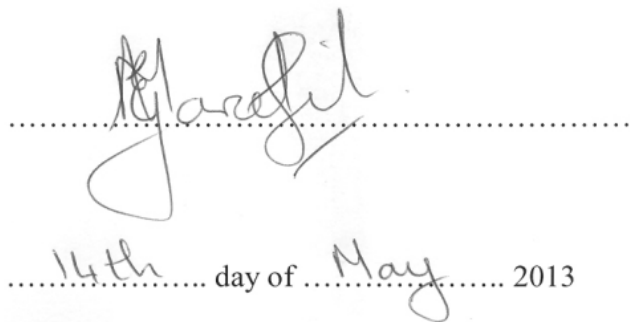 14th day of May 2013